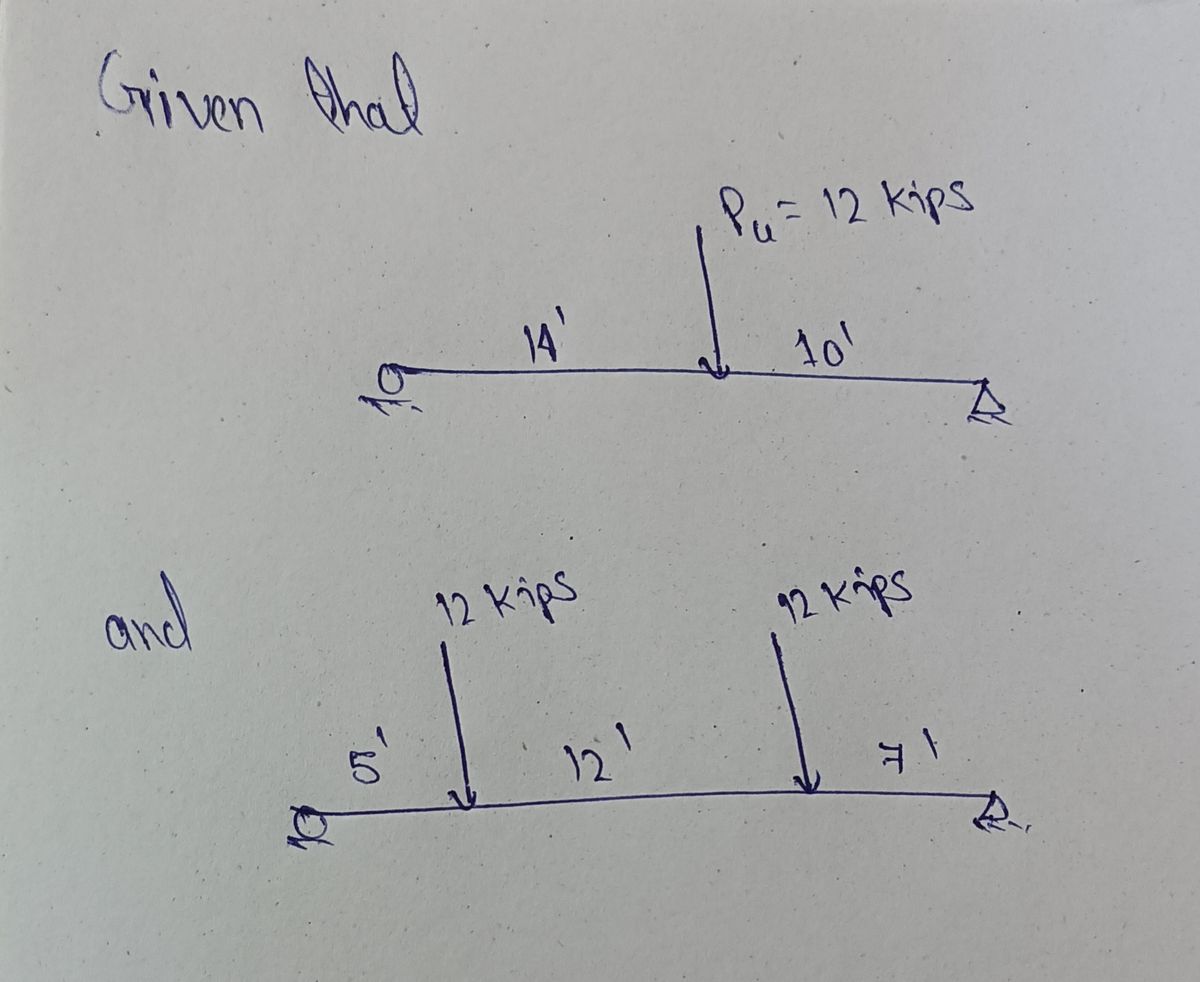 Given that
Pu = 12 kips
14' 10'
and
12 kips 12 kips
5' 12' 7'